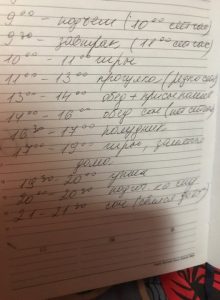 9⁰⁰ - подъем (10⁰⁰ сейчас)
9³⁰ - завтрак (11⁰⁰ сейчас)
10⁰⁰ - 11⁰⁰ игры
11⁰⁰ - 13⁰⁰ прогулка (
13⁰⁰ - 14⁰⁰ обед +
14⁰⁰ - 16⁰⁰ обед сон (
16³⁰ - 17⁰⁰ полдник
17⁰⁰ - 19⁰⁰ игры,
дома.
19³⁰ - 20⁰⁰ ужин
20⁰⁰ - 20³⁰ подгот ко сну
21 - 21³⁰ сон (